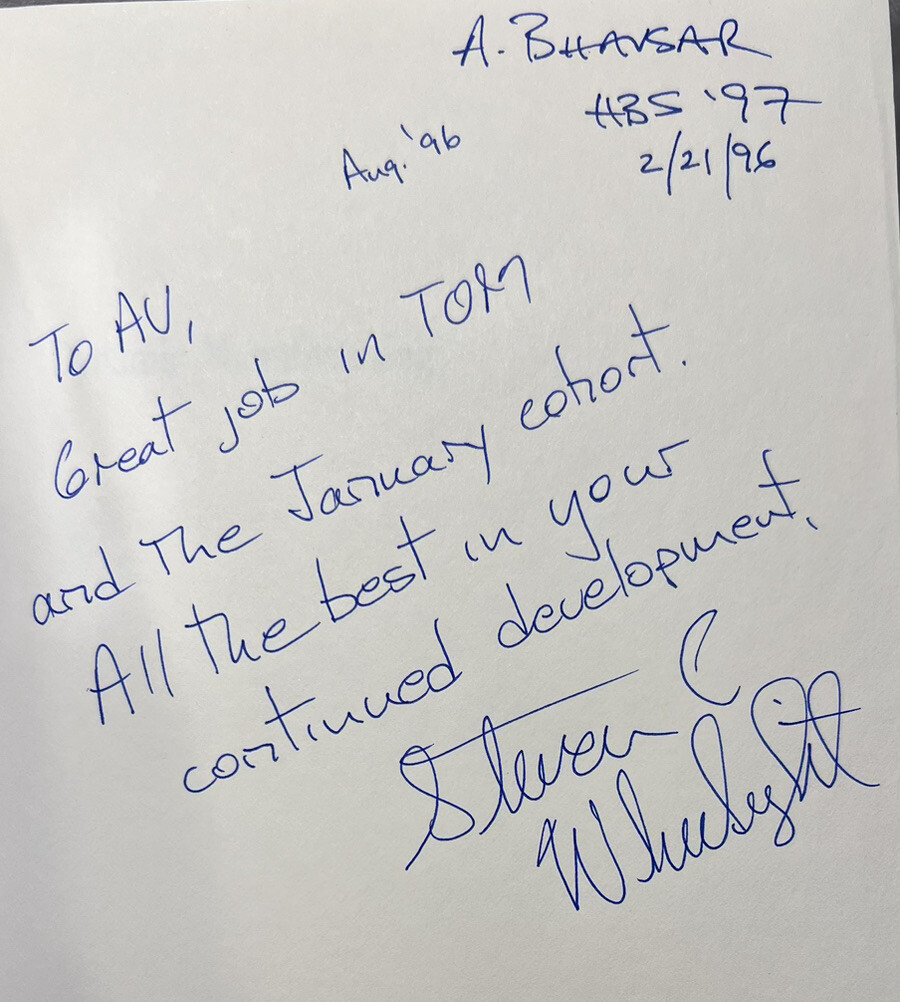 A. BHAVSAR
HBS '97
2/21/96
Aug. '96
To AV,
Great job in TOM
and The January cohort.
All the best in your
continued development,
Steven C
Wheelwright